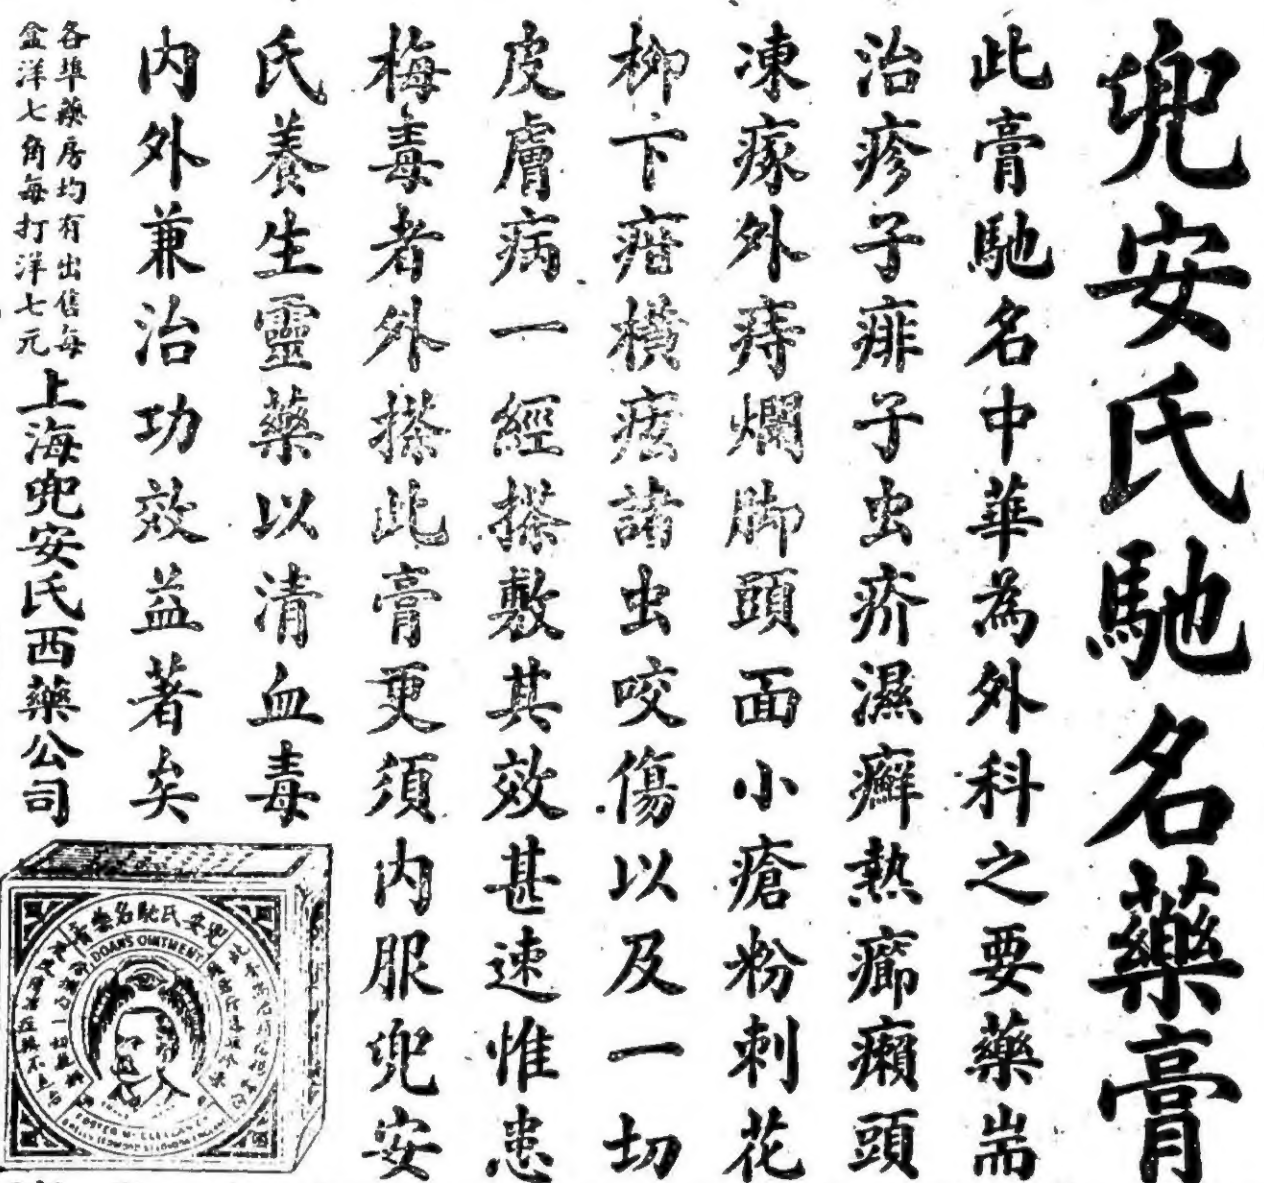 兜安氏馳名藥膏
此膏馳名中華為外科之要藥耑
治疹子痱子虫疥濕癬熱癤癩頭
凍瘃外痔爛脚頭面小瘡粉刺花
柳下疳橫痃諸虫咬傷以及一切
皮膚病一經搽敷其效甚速惟患
梅毒者外搽此膏更須内服兜安
氏養生靈藥以清血毒
内外兼治功效益著矣
各埠藥房均有出售每
盒洋七角每打洋七元
上海兜安氏西藥公司
兜安氏馳名藥膏
DOAN'S OINTMENT